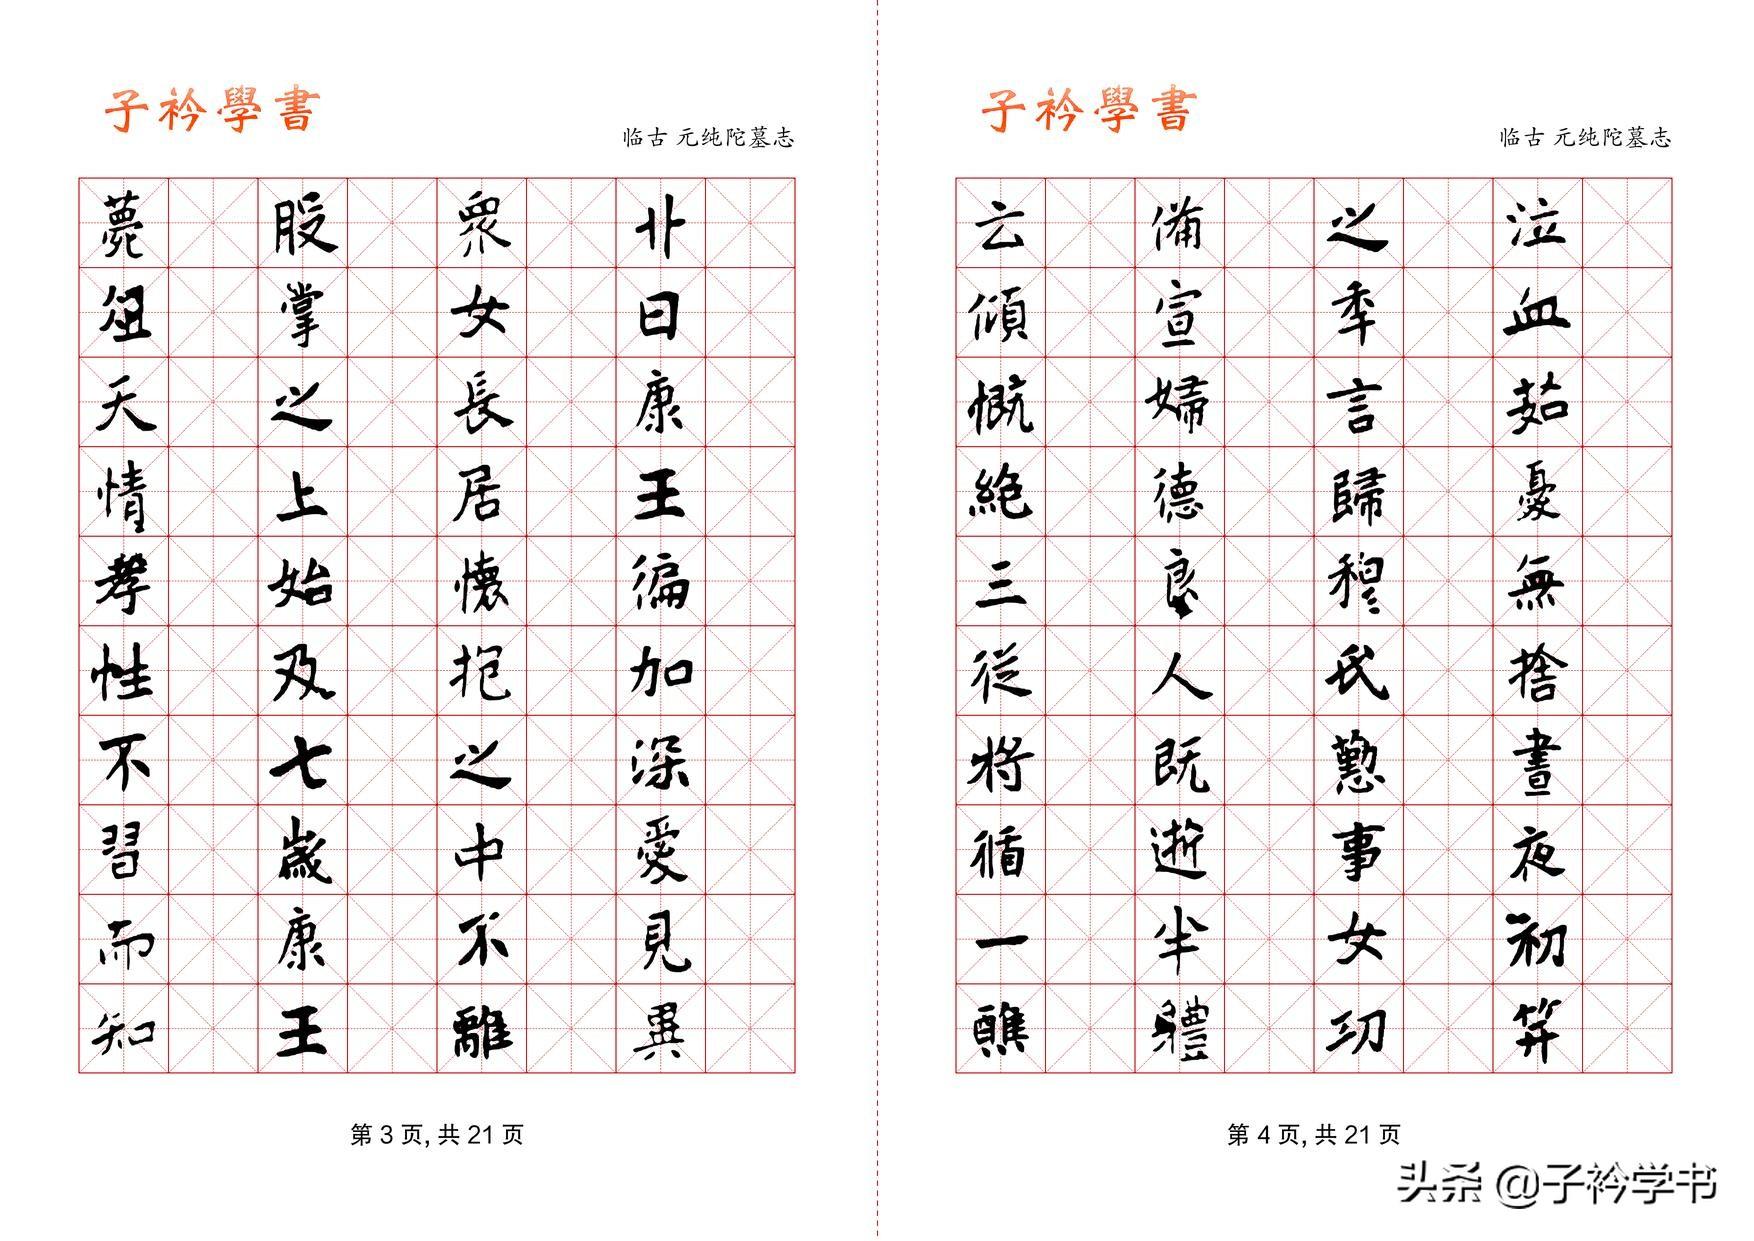 子衿學書
临古 元纯陀墓志
卝日康王徧加深愛見異
衆女長居懷抱之中不離
股掌之上始及七歲康王
薨徂天情孝性不習而知
第 3 页, 共 21 页
子衿學書
临古 元纯陀墓志
泣血茹憂無捨晝夜初笄
之秊言歸穆氏懃事女功
備宣婦德良人既逝半體
云傾慨絕三從將循一醮
第 4 页, 共 21 页
头条 @子衿学书